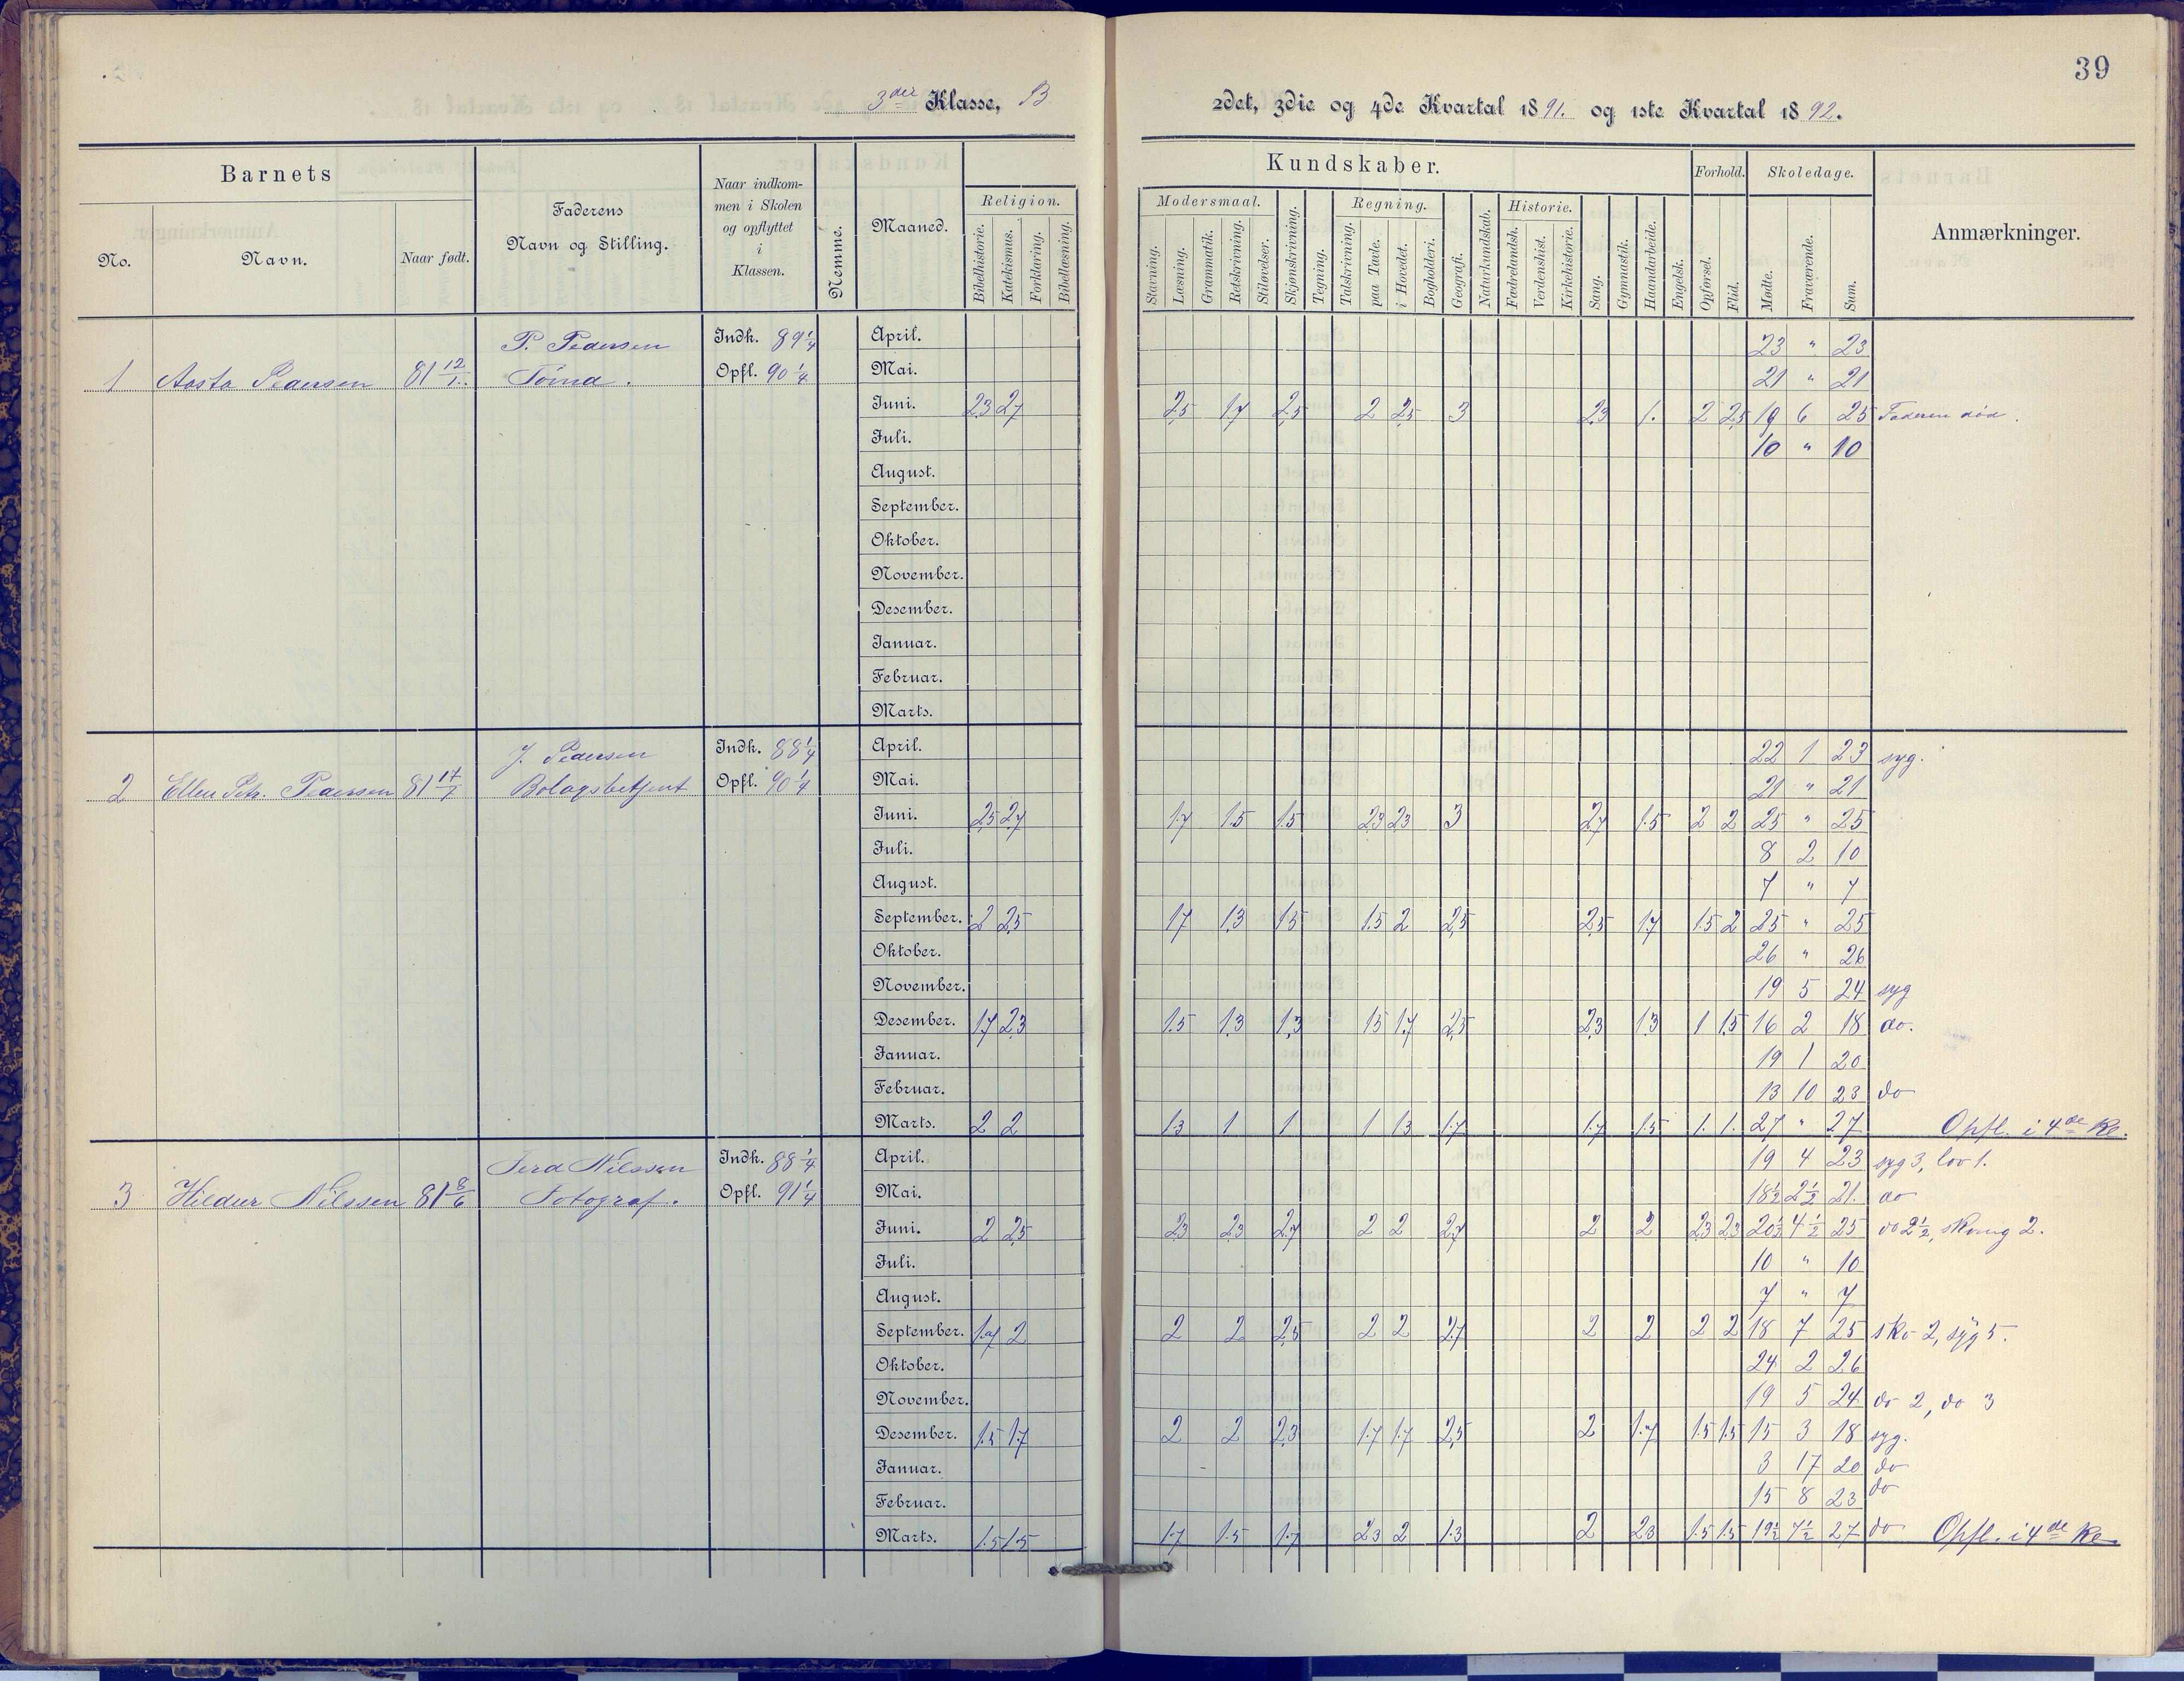 39
3die Klasse, B
2det, 3die og 4de Kvartal 1891. og 1ste Kvartal 1892.
Barnets
No. Navn. Naar født.
Faderens Navn og Stilling.
Naar indkommen i Skolen og opflyttet i Klassen.
Nemme.
Maaned.
Kundskaber.
Religion. Bibelhistorie. Katekismus. Forklaring. Bibellæsning.
Modersmaal. Stavning. Læsning. Grammatik. Retskrivning. Stiløvelser.
Skjønskrivning. Tegning.
Regning. Talskrivning. paa Tavle. i Hovedet. Bogholderi.
Geografi. Naturkundskab.
Historie. Fædrelandsh. Verdenshist. Kirkehistorie.
Sang. Gymnastik. Haandarbeide. Engelsk.
Forhold. Opførsel. Flid.
Skoledage. Mødte. Fraværende. Sum.
Anmærkninger.
1 Aasta Pedersen 81 12/1. P. Pedersen Indk. 89 1/4 Opfl. 90 1/4
April. 23 " 23
Mai. 21 " 21
Juni. 2,3 2,7 2,5 1,7 2,5 2 2,5 3 2,3 1. 2 2,5 19 6 25 Faderen død.
Juli. 10 " 10
August.
September.
Oktober.
November.
Desember.
Januar.
Februar.
Marts.
2 Ellen Petr. Pedersen 81 17/7 J. Pedersen Bolagsbetjent Indk. 88 1/4 Opfl. 90 1/4
April. 22 1 23 syg.
Mai. 21 " 21
Juni. 2,5 2,7 1,7 1,5 1,5 2,3 2,3 3 2,7 1,5 2 2 25 " 25
Juli. 8 2 10
August. 7 " 7
September. 2 2,5 1,7 1,3 1,5 1,5 2 2,5 2,5 1,7 1,5 2 25 " 25
Oktober. 26 " 26
November. 19 5 24 syg
Desember. 1,7 2,3 1,5 1,3 1,3 1,5 1,7 2,5 2,3 1,3 1 1,5 16 2 18 do.
Januar. 19 1 20
Februar. 13 10 23 do
Marts. 2 2 1,3 1 1 1 1,3 1,7 1,7 1,5 1. 1. 27 " 27 Opfl. i 4de Kl.
3 Hildur Nilssen 81 8/6 Ferd Nilssen Fotograf. Indk. 88 1/4 Opfl. 91 1/4
April. 19 4 23 syg 3, lov 1.
Mai. 18½ 2½ 21. do
Juni. 2 2,5 2,3 2,3 2,7 2 2 2,7 2 2 2,3 2,3 20½ 4½ 25 do 2½, skomg 2.
Juli. 10 " 10
August. 7 " 7
September. 1,7 2 2 2 2,5 2 2 2,7 2 2 2 2 18 7 25 sko 2, syg 5.
Oktober. 24 2 26
November. 19 5 24 do 2, do 3
Desember. 1,5 1,7 2 2 2,3 1,7 1,7 2,5 2 1,7 1,5 1,5 15 3 18 syg.
Januar. 3 17 20 do
Februar. 15 8 23 do
Marts. 1,5 1,5 1,7 1,5 1,7 2,3 2 1,3 2 2,3 1,5 1,5 19½ 7½ 27 do Opfl. i 4de Kl.